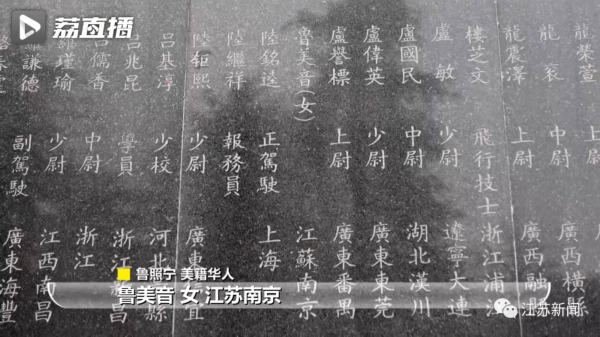 荔直播
龍榮萱 上尉 廣西橫縣
龍袞 中尉 廣西融
龍震澤 上尉
樓芝文 飛行技士 浙江浦
盧敏 少尉 遼寧大連
盧國民 中尉 湖北漢川
盧偉英 少尉 廣東東莞
盧譽標 上尉 廣東番禺
魯美音(女) 江蘇南京
陸銘逵 正駕駛 上海
陸繼祥 報務員
陸鉅熙 少尉 廣東 宜
呂基淳 少校 河北 縣
呂兆昆 學員 浙江 昌
呂儒香 中尉 浙江
瑾瑜 少尉 江西南昌
謙德 副駕駛 廣東海豐
鲁照宁 美籍华人
鲁美音 女 江苏南京
江苏新闻